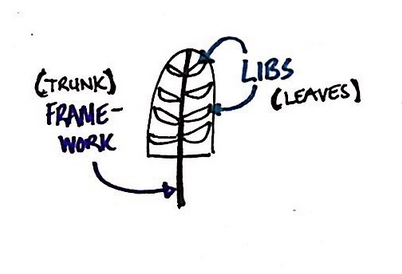 (TRUNK)
FRAME-
WORK
LIBS
(LEAVES)